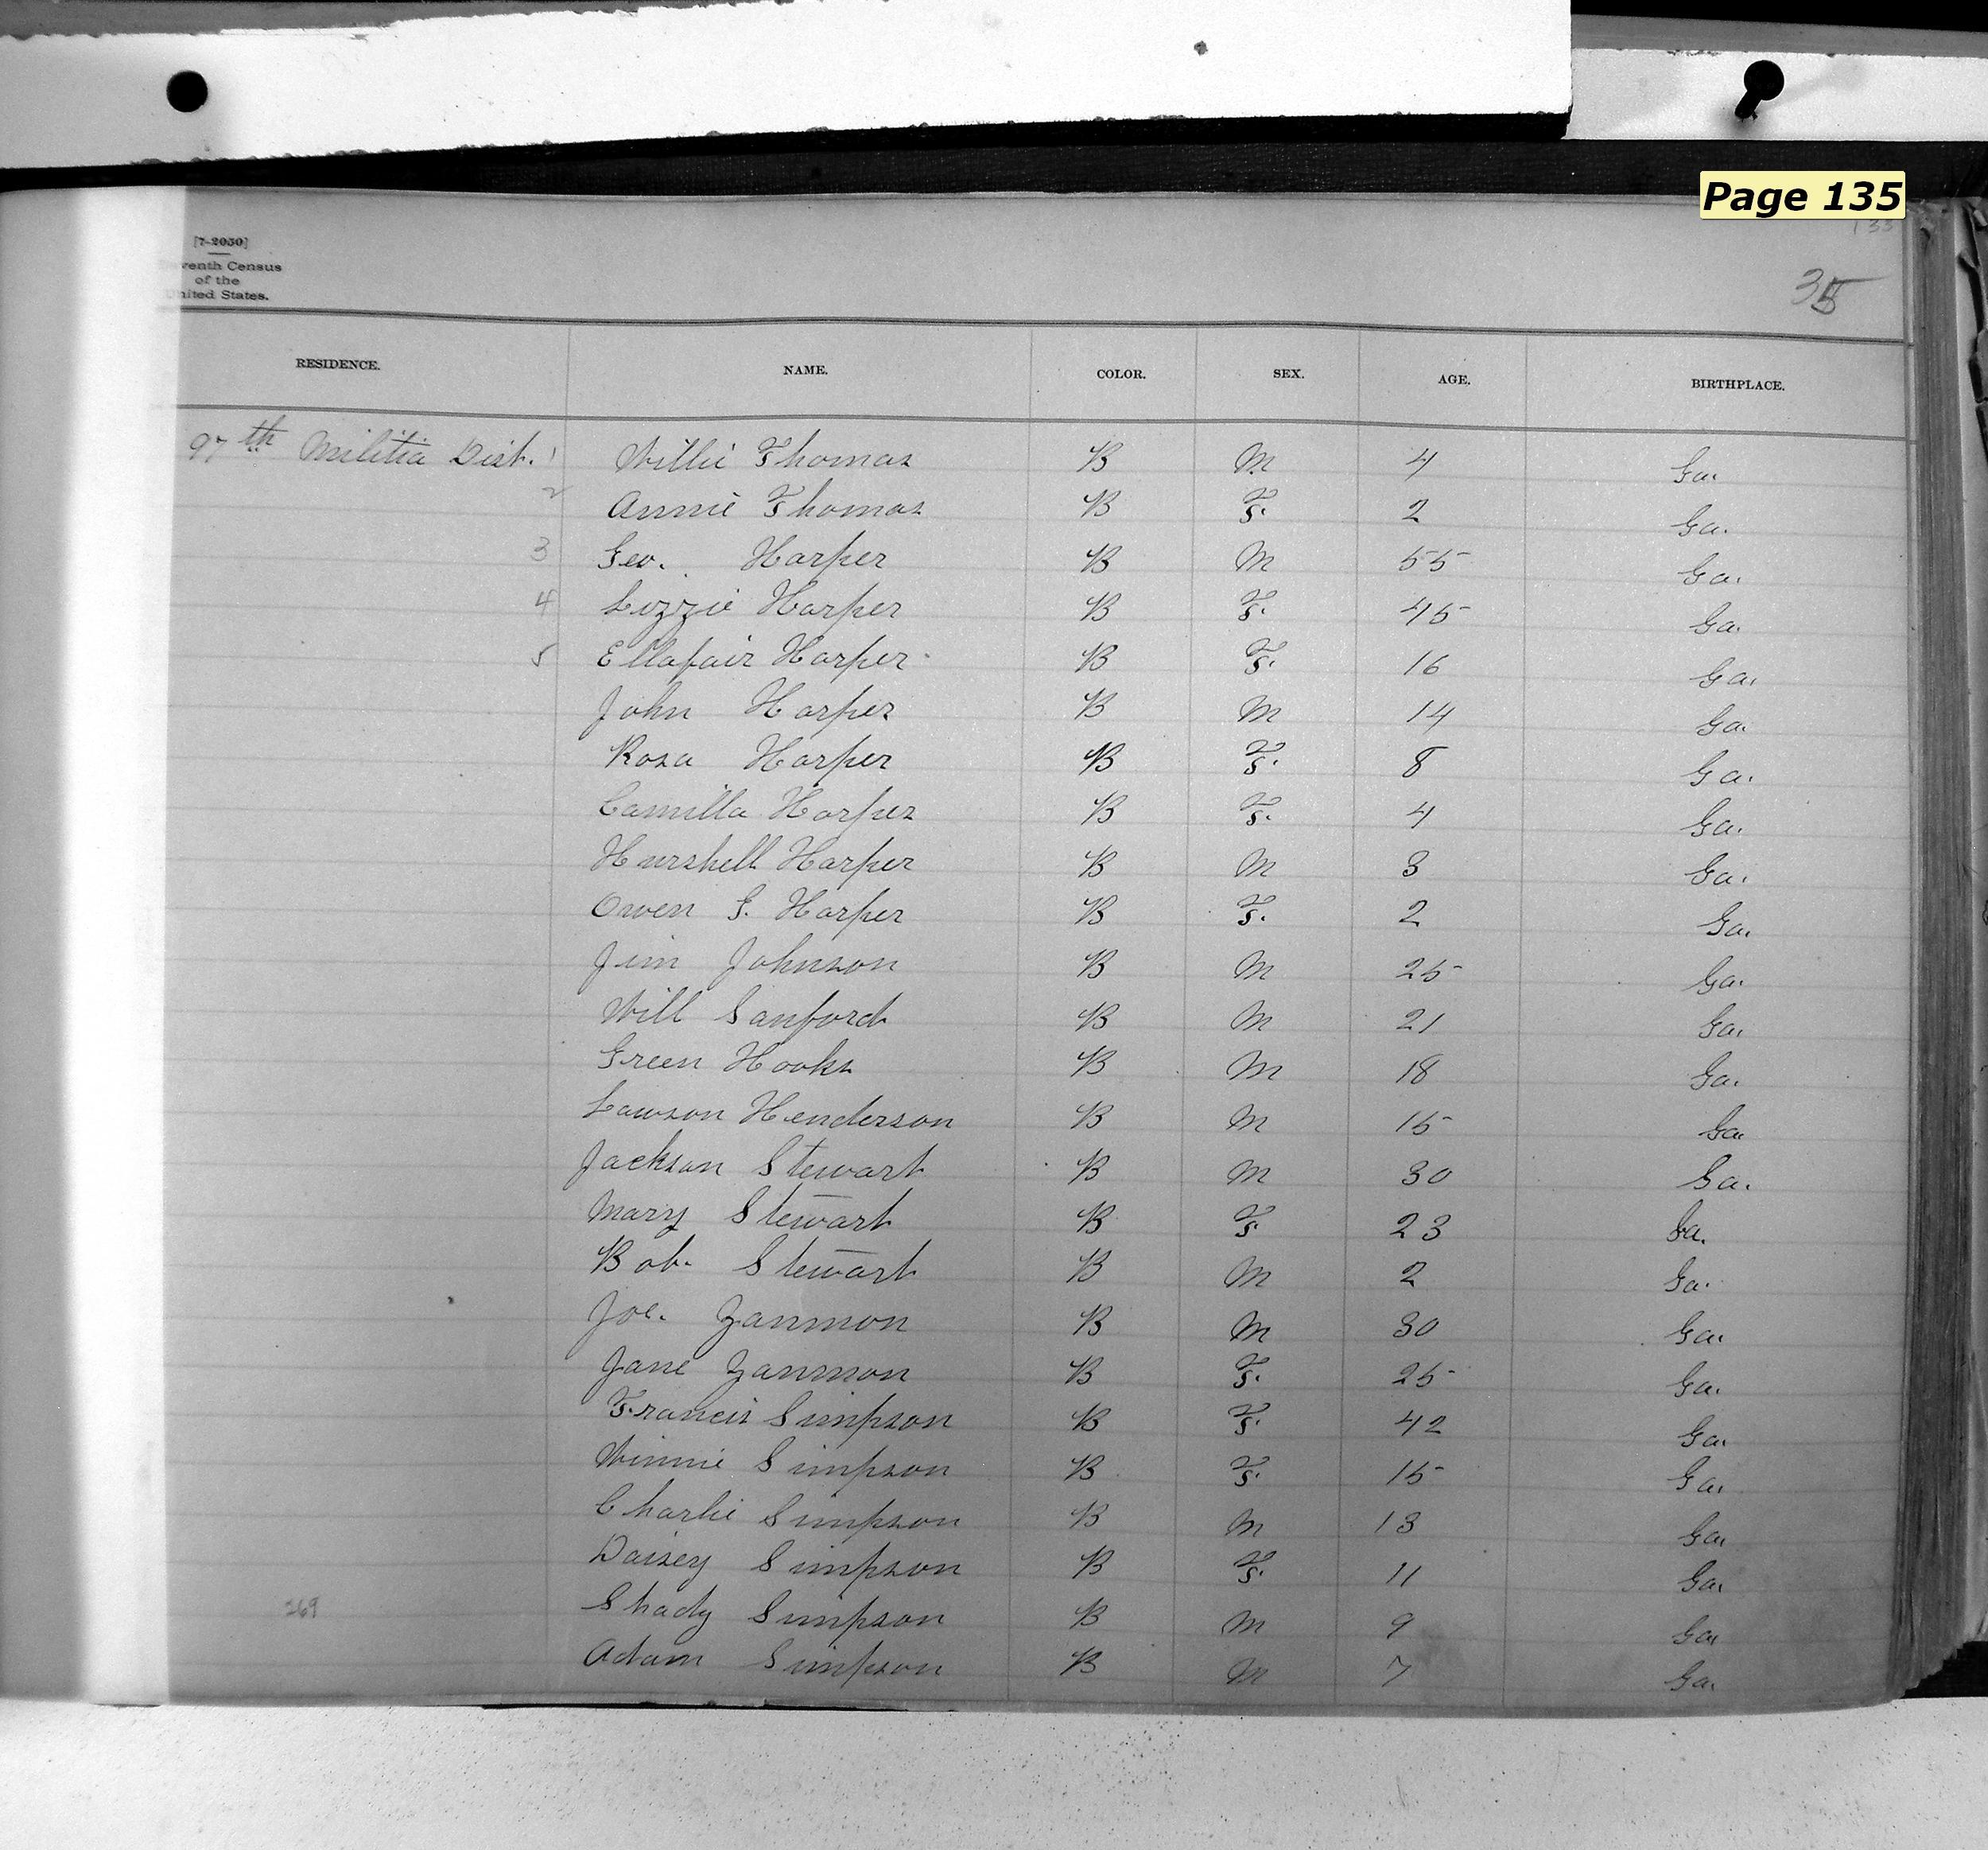 Page 135
[7-2050]
venth Census
of the
nited States.
135
35
RESIDENCE. NAME. COLOR. SEX. AGE. BIRTHPLACE.
97th Militia Dist. 1 Willie Thomas B M 4 Ga.
2 Annie Thomas B F. 2 Ga.
3 Geo. Harper B M 55 Ga.
4 Lizzie Harper B F. 45 Ga.
5 Ellafair Harper B F. 16 Ga.
John Harper B M 14 Ga.
Rosa Harper B F. 8 Ga.
Camilla Harper B F. 4 Ga.
Hurshell Harper B M 3 Ga.
Owen G. Harper B F. 2 Ga.
Jim Johnson B M 25 Ga.
Will Sanford B M 21 Ga.
Green Hooks B M 18 Ga.
Lawson Henderson B M 15 Ga.
Jackson Stewart B M 30 Ga.
Mary Stewart B F 23 Ga.
Bob. Stewart B M 2 Ga.
Joe. Zanmon B M 30 Ga.
Jane Zanmon B F. 25 Ga.
Francis Simpson B F. 42 Ga.
Winnie Simpson B F. 15 Ga.
Charlie Simpson B M 13 Ga.
Daisey Simpson B F. 11 Ga.
269 Shady Simpson B M 9 Ga.
Adam Simpson B M 7 Ga.